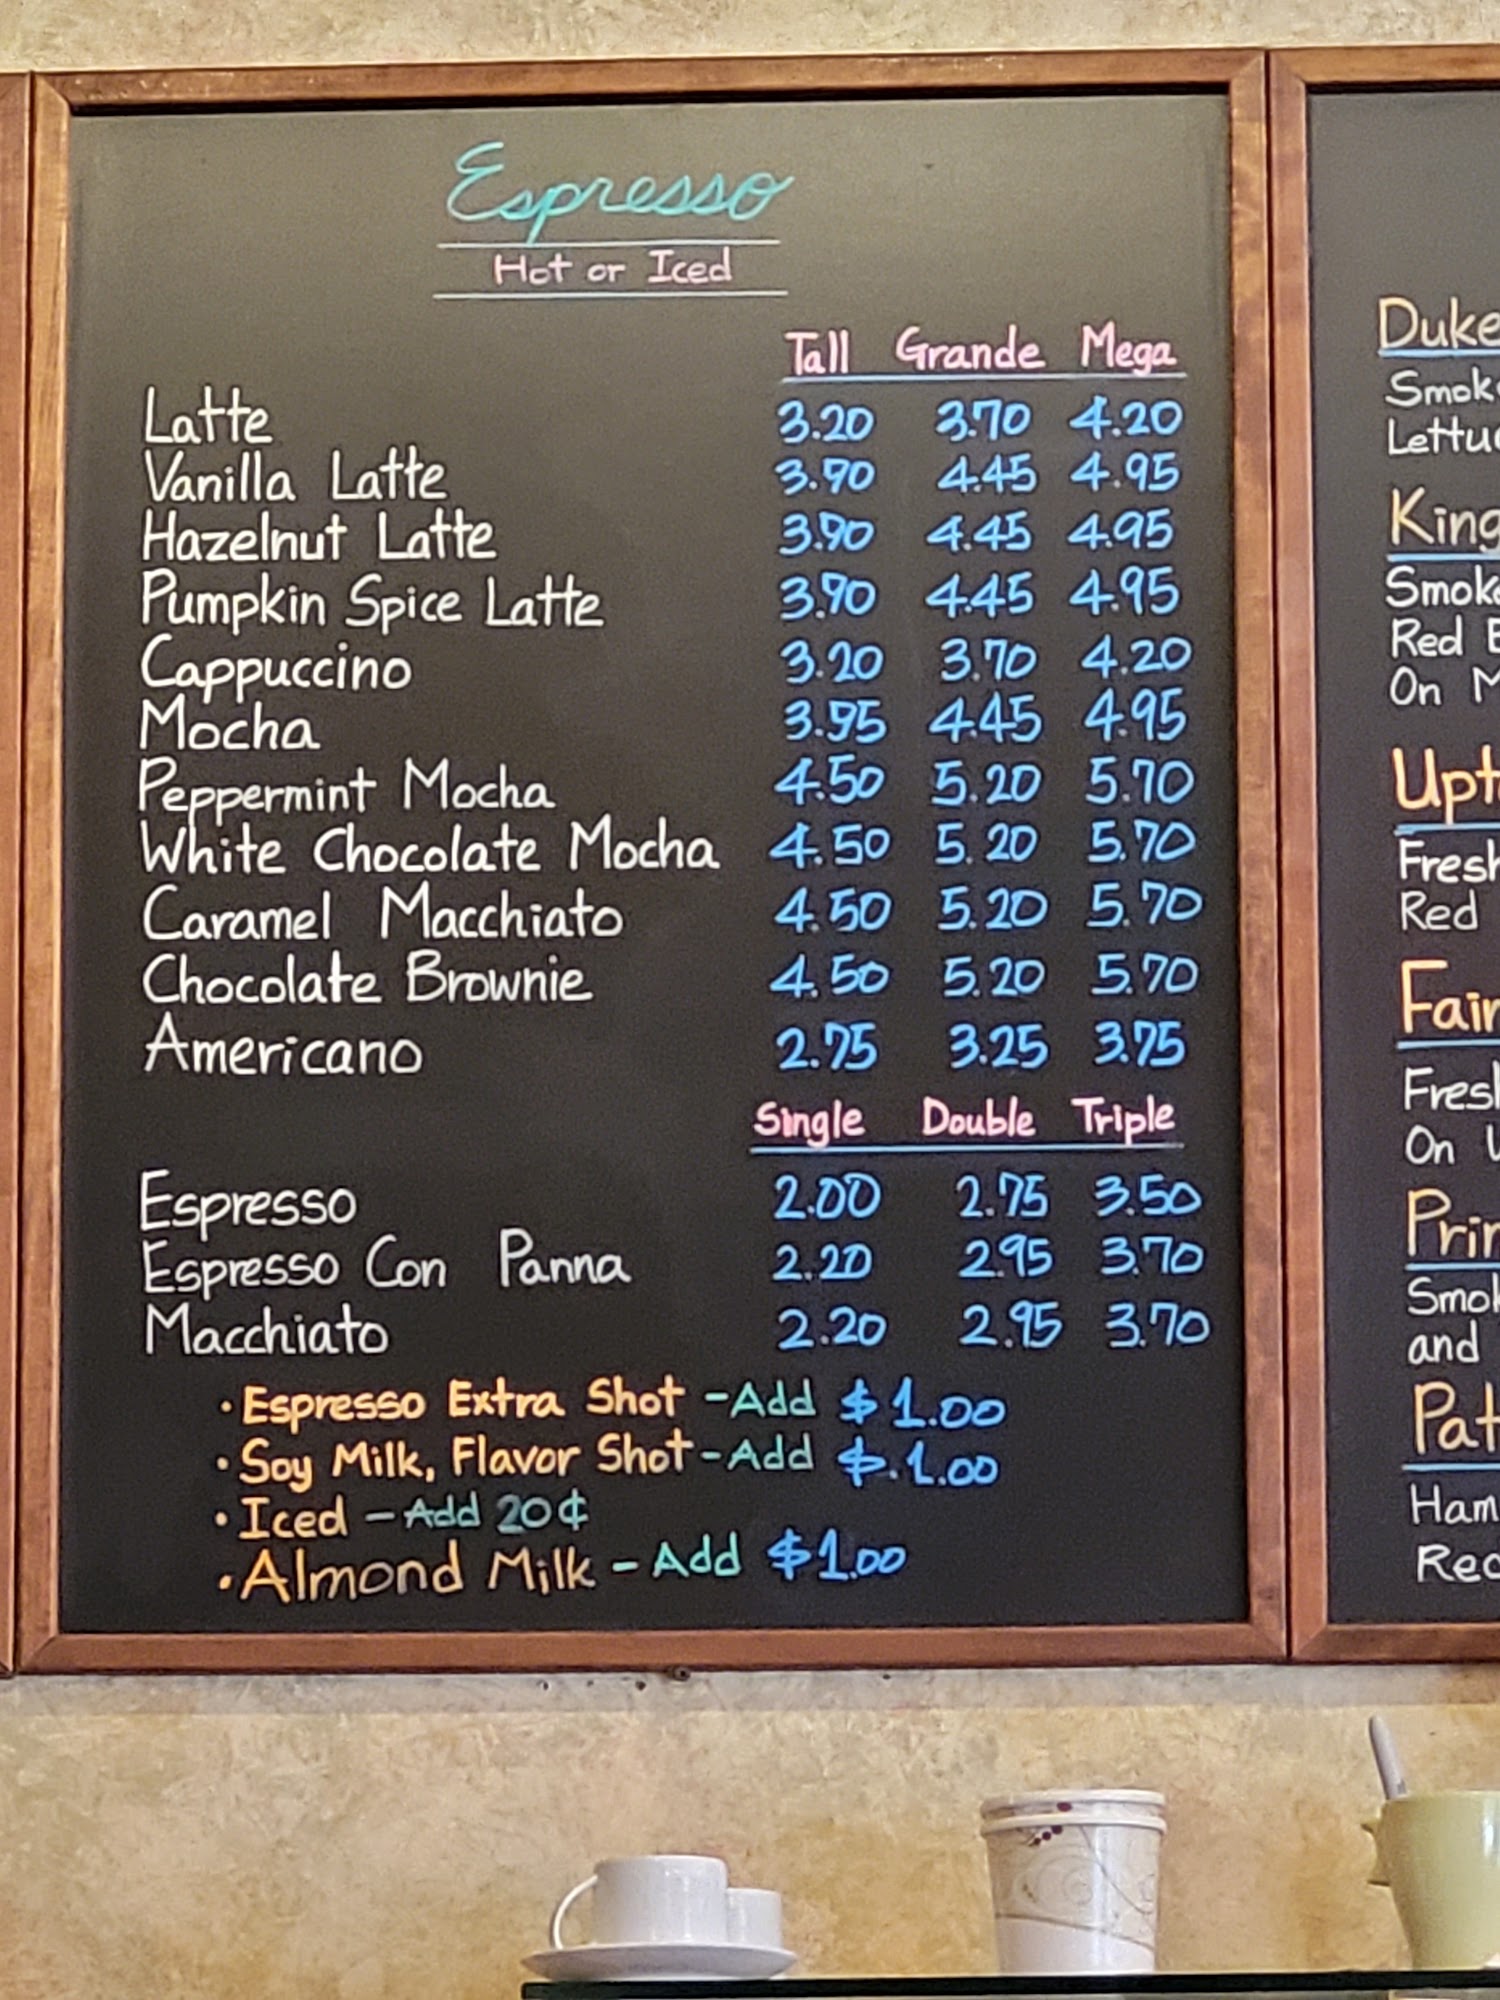 Espresso
Hot or Iced
Tall Grande Mega
Latte 3.20 3.70 4.20
Vanilla Latte 3.90 4.45 4.95
Hazelnut Latte 3.90 4.45 4.95
Pumpkin Spice Latte 3.90 4.45 4.95
Cappuccino 3.20 3.70 4.20
Mocha 3.95 4.45 4.95
Peppermint Mocha 4.50 5.20 5.70
White Chocolate Mocha 4.50 5.20 5.70
Caramel Macchiato 4.50 5.20 5.70
Chocolate Brownie 4.50 5.20 5.70
Americano 2.75 3.25 3.75
Single Double Triple
Espresso 2.00 2.75 3.50
Espresso Con Panna 2.20 2.95 3.70
Macchiato 2.20 2.95 3.70
• Espresso Extra Shot - Add $1.00
• Soy Milk, Flavor Shot - Add $.1.00
• Iced - Add 20¢
• Almond Milk - Add $1.00
Duke
Smok
Lettu
King
Smok
Red
On
Upt
Fresh
Red
Fair
Fresh
On
Prin
Smok
and
Pat
Ham
Red